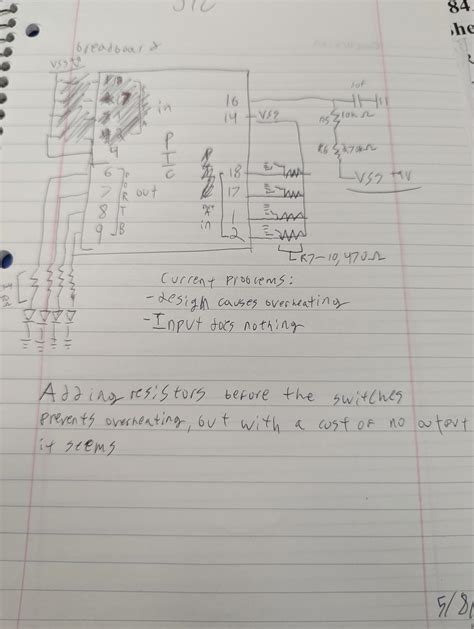 84.
breadboard 2
VSS
in
16
14
VSS
1uf
R5
10kΩ
R6
470Ω
VSS
9V
4
PIC
6
7
8
9
PORT B
out
18
17
1
2
in
R7-10, 470Ω
Current problems:
- design causes overheating
- Input does nothing
Adding resistors before the switches
prevents overheating, but with a cost of no output
it seems
5/8